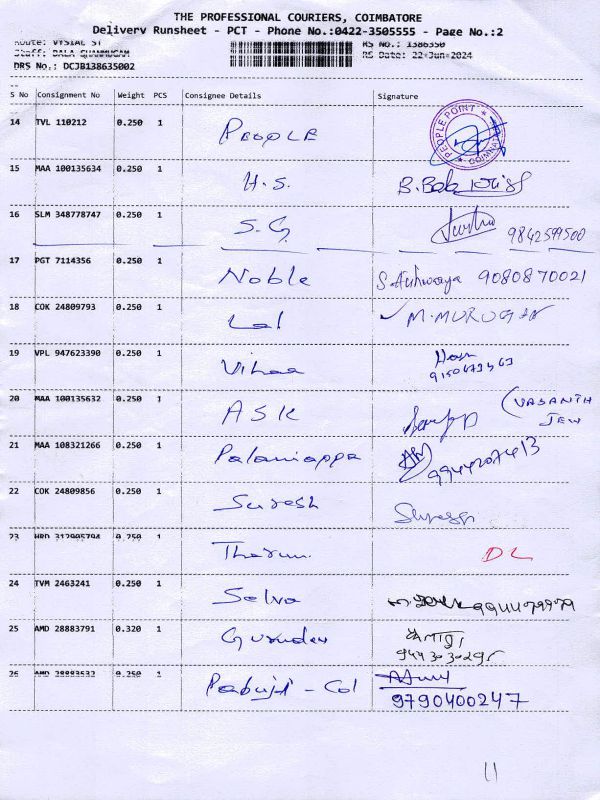 THE PROFESSIONAL COURIERS, COIMBATORE
Delivery Runsheet - PCT - Phone No.:0422-3505555 - Page No.:2
Route: VYSIAL ST
RS No.: 1386350
Staff: BALA SHANMUGAM
RS Date: 22-Jun-2024
DRS No.: DCJB138635002
S No Consignment No Weight PCS Consignee Details Signature
14 TVL 110212 0.250 1 PEOPLE PEOPLE POINT
15 MAA 100135634 0.250 1 H.S. B.
16 SLM 348778747 0.250 1 S.G 9842599500
17 PGT 7114356 0.250 1 Noble S. 9080870021
18 COK 24809793 0.250 1 Lal M.MURUGAN
19 VPL 947623390 0.250 1 Vihaa
20 MAA 100135632 0.250 1 ASK (VASANTH
JEW
21 MAA 108321266 0.250 1 Palaniappa 9944207413
22 COK 24809856 0.250 1 Suresh
23 HRD 312905794 0.250 1 Tharun. DL
24 TVM 2463241 0.250 1 Selva
25 AMD 28883791 0.320 1 Gurudev
26 AMD 28883532 0.250 1 - Col
9790400247
11